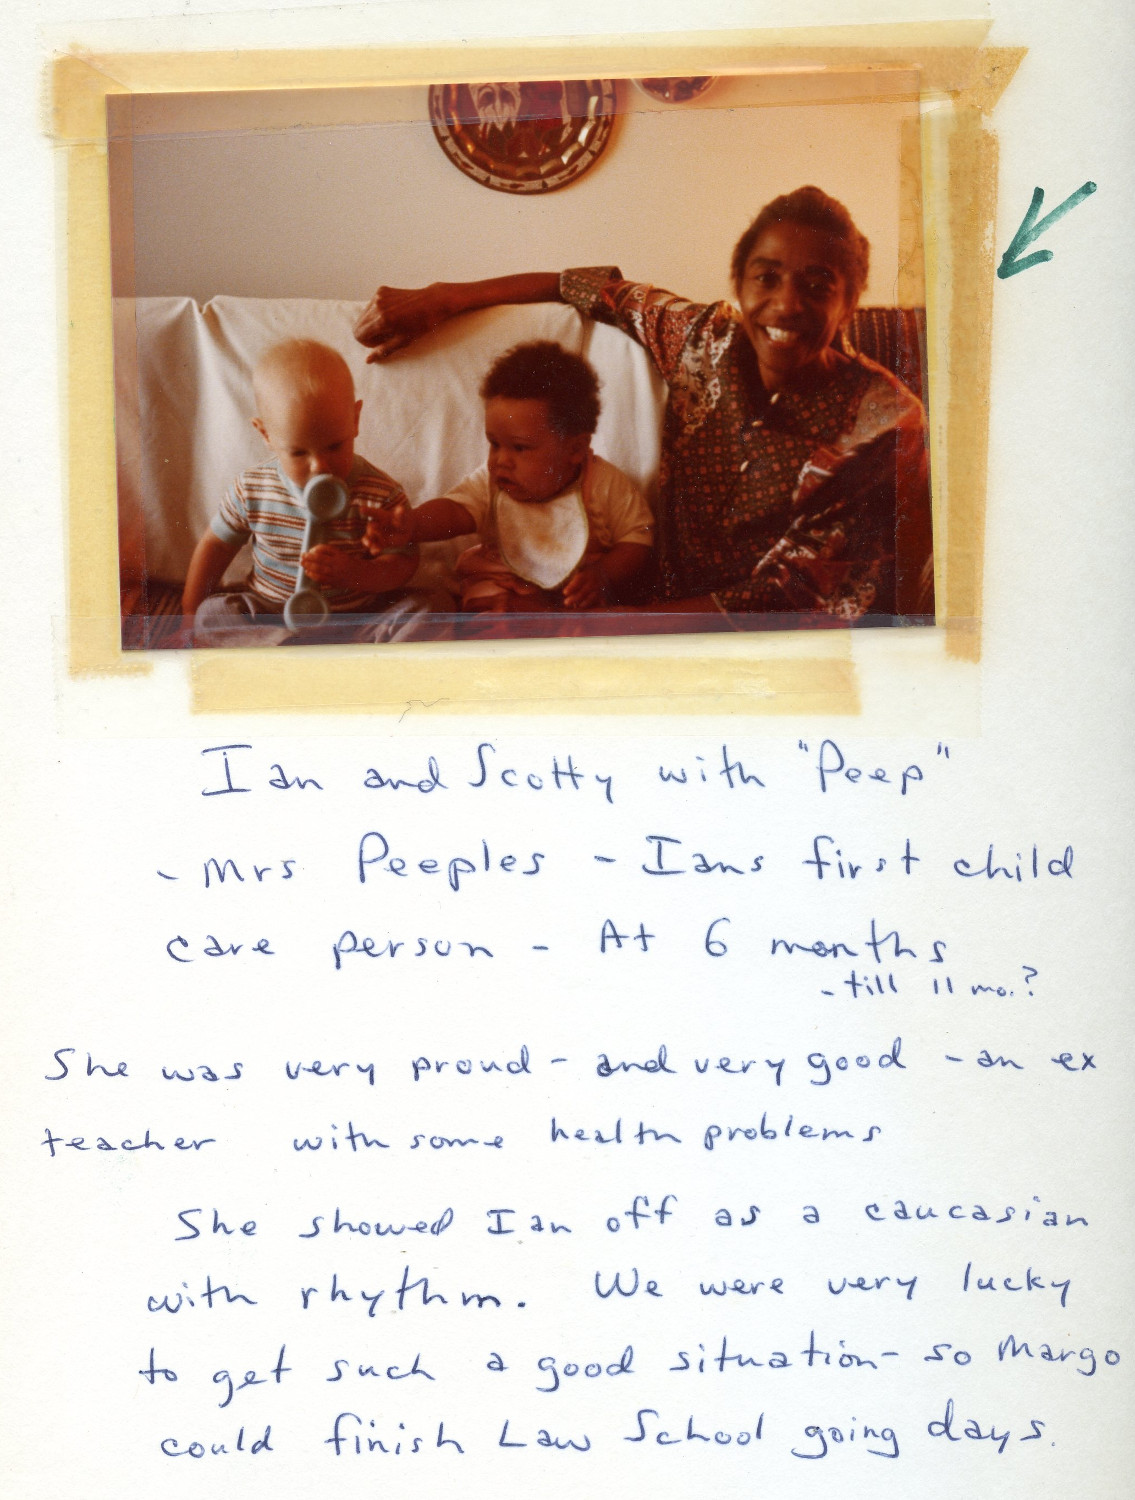 Ian and Scotty with "Peep"
- Mrs Peeples - Ians first child
care person - At 6 months
- till 11 mo.?
She was very proud - and very good - an ex
teacher with some health problems
She showed Ian off as a caucasian
with rhythm. We were very lucky
to get such a good situation - so Margo
could finish Law School going days.